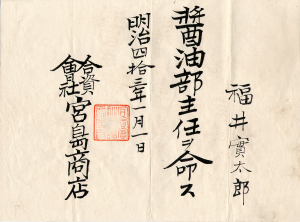 福井實太郎
醤油部主任ヲ命ス
明治四拾三年一月一日
合資會社宮島商店